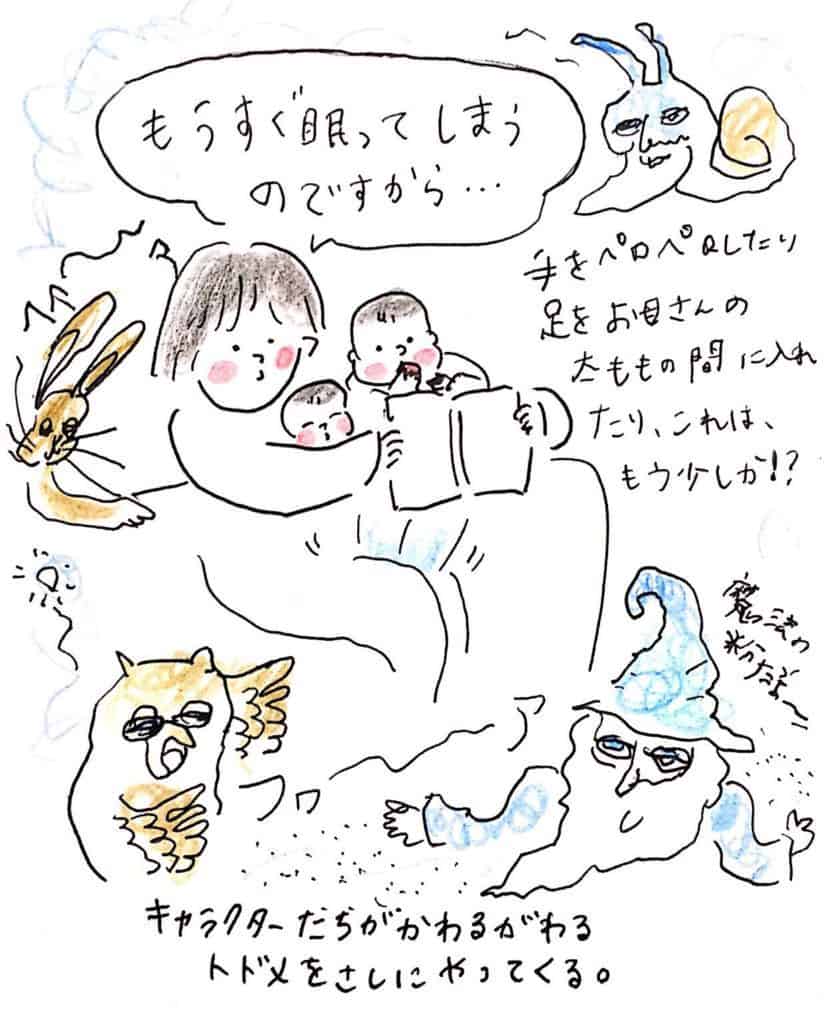 もうすぐ眠ってしまう
のですから…
手をペロペロしたり
足をお母さんの
太ももの間に入れ
たり、これは、
もう少しか!?
魔法の
粉だよ〜
フロ ア
キャラクターたちがかわるがわる
トドメをさしにやってくる。